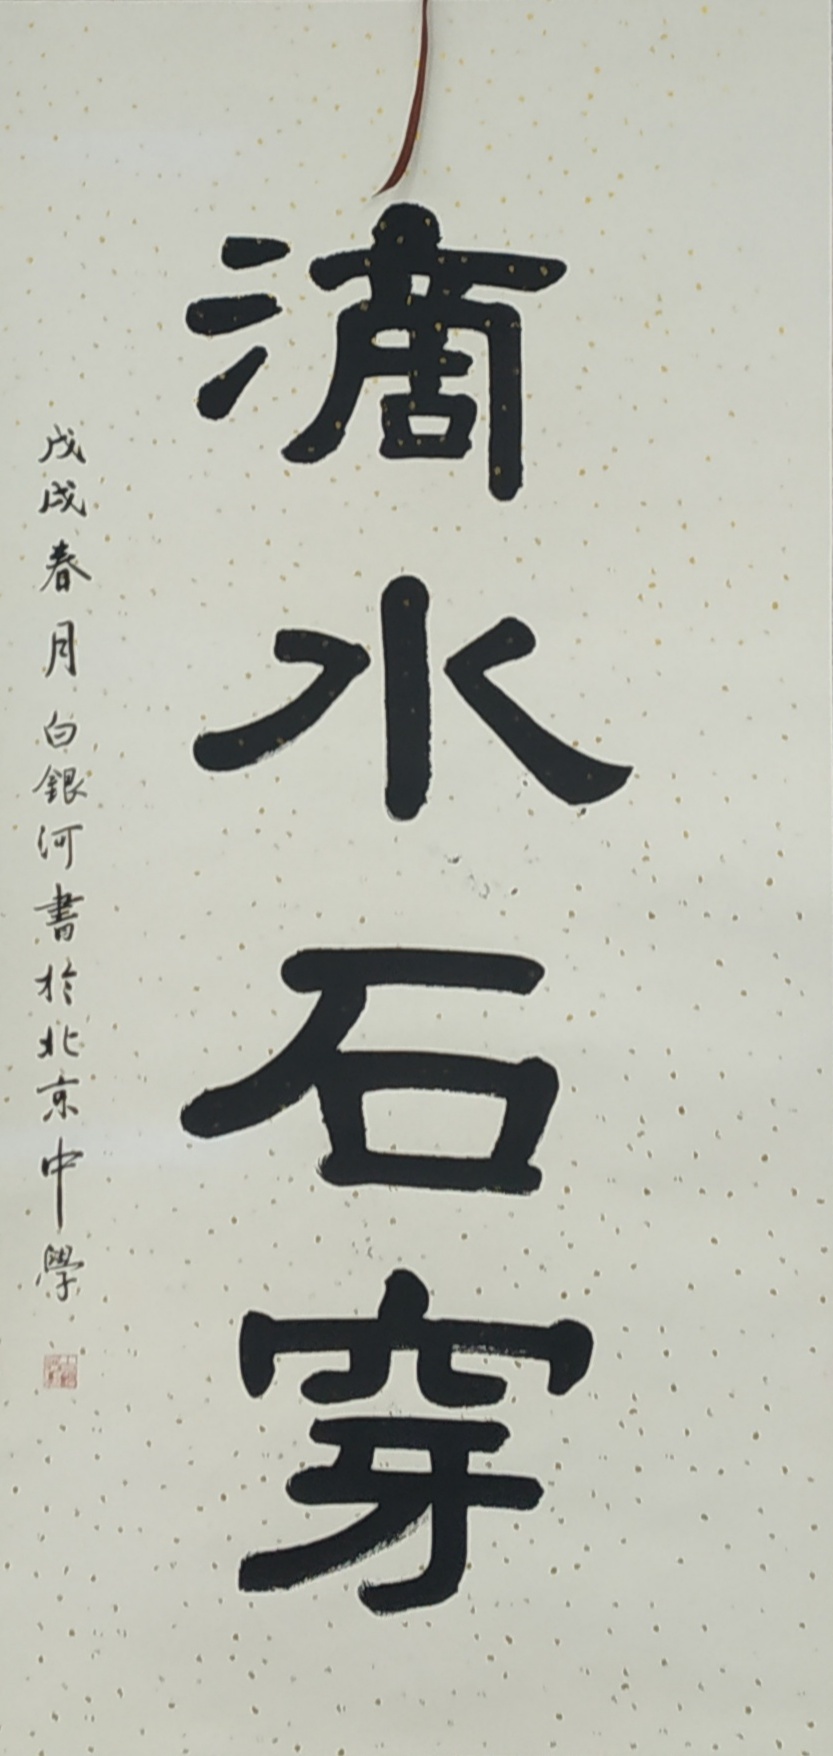 滴水石穿
戊戌春月白銀河書於北京中學